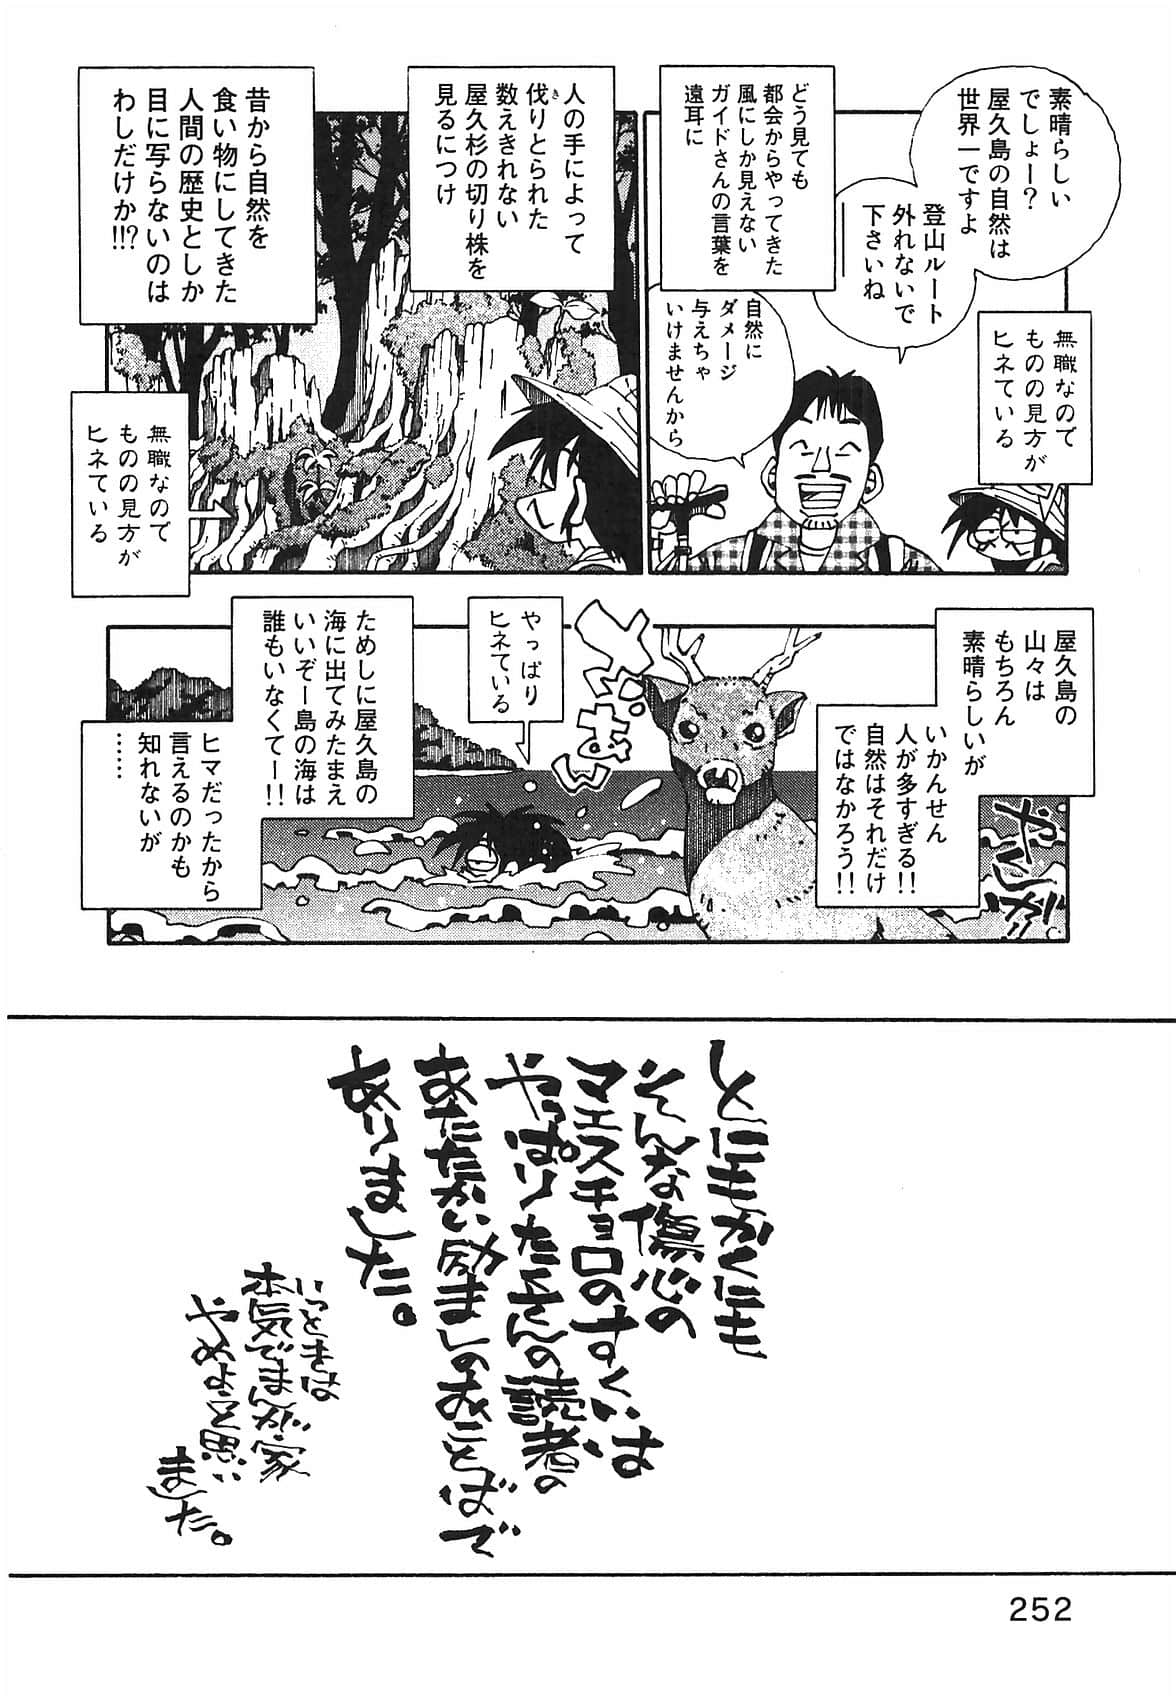 素晴らしい
でしょー?
屋久島の自然は
世界一ですよ
登山ルート
外れないで
下さいね
無職なので
ものの見方が
ヒネている
どう見ても
都会からやってきた
風にしか見えない
ガイドさんの言葉を
遠耳に
自然に
ダメージ
与えちゃ
いけませんから
人の手によって
伐りとられた
き
数えきれない
屋久杉の切り株を
見るにつけ
昔から自然を
食い物にしてきた
人間の歴史としか
目に写らないのは
わしだけか!!?
無職なので
ものの見方が
ヒネている
屋久島の
山々は
もちろん
素晴らしいが
いかんせん
人が多すぎる!!
自然はそれだけ
ではなかろう!!
やくしか
やっぱり
ヒネている
ためしに屋久島の
海に出てみたまえ
いいぞー島の海は
誰もいなくてー!!
ヒマだったから
言えるのかも
知れないが
……
とにもかくにも
そんな傷心の
マエスチョロのすくいは
やっぱりたくさんの読者の
あたたかい励ましのおことばで
ありました。
いっときは
本気でまんが家
やめようと思い
ました。
252